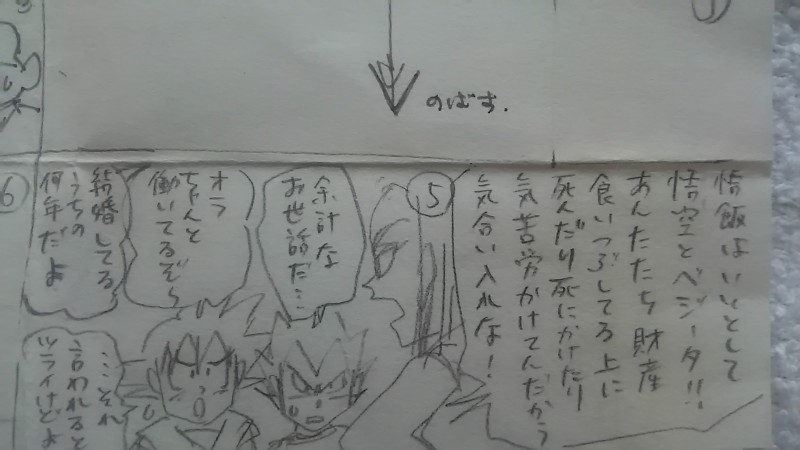 ①
のばす.
⑤
悟飯はいいとして
悟空とベジータ!!
あんたたち財産
食いつぶしてる上に
死んだり死にかけたり
気苦労かけてんだから
気合い入れな!
余計な
お世話だ…
オラ
ちゃんと
働いてるぞ〜
⑥
結婚してる
うちの
何年だよ
…それ
言われると
ツライけどよ